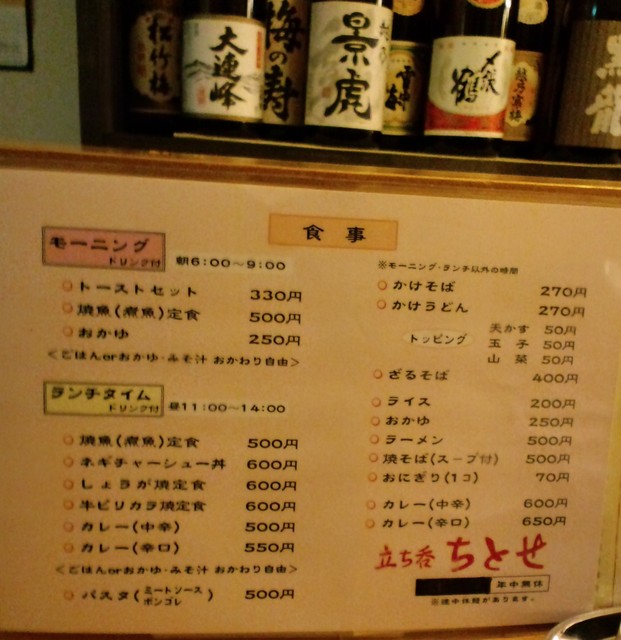 松竹梅
大連峰
梅の寿
景虎
雪中梅
〆張鶴
越乃寒梅
黒龍
食事
モーニング
ドリンク付
朝6:00〜9:00
トーストセット 330円
焼魚(煮魚)定食 500円
おかゆ 250円
<ごはんorおかゆ・みそ汁 おかわり自由>
ランチタイム
ドリンク付
昼11:00〜14:00
焼魚(煮魚)定食 500円
ネギチャーシュー丼 600円
しょうが焼定食 600円
牛ピリカラ焼定食 600円
カレー(中辛) 500円
カレー(辛口) 550円
<ごはんorおかゆ・みそ汁 おかわり自由>
パスタ(ミートソース ボンゴレ) 500円
※モーニング・ランチ以外の時間
かけそば 270円
かけうどん 270円
トッピング
天かす 50円
玉子 50円
山菜 50円
ざるそば 400円
ライス 200円
おかゆ 250円
ラーメン 500円
焼そば(スープ付) 500円
おにぎり(1コ) 70円
カレー(中辛) 600円
カレー(辛口) 650円
立ち呑 ちとせ
年中無休
※途中休憩があります。